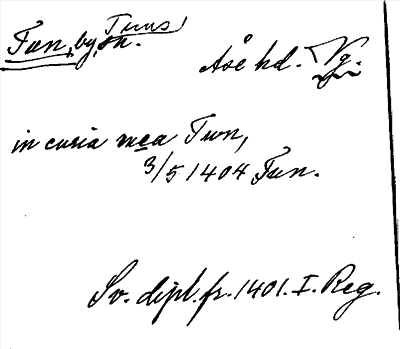 Tuns
Tun, by, sn. Åse hd. Vg.
in curia mea Twn,
3/5 1404 Tun.
Sv. dipl. fr. 1401. I. Reg.